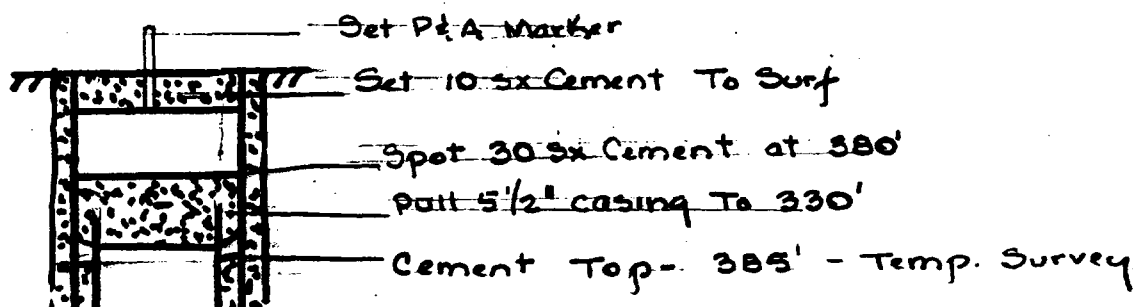 Set P&A Marker
Set 10 sx Cement To Surf
Spot 30 sx Cement at 380'
Pull 5 1/2" casing To 330'
Cement Top - 385' - Temp. Survey